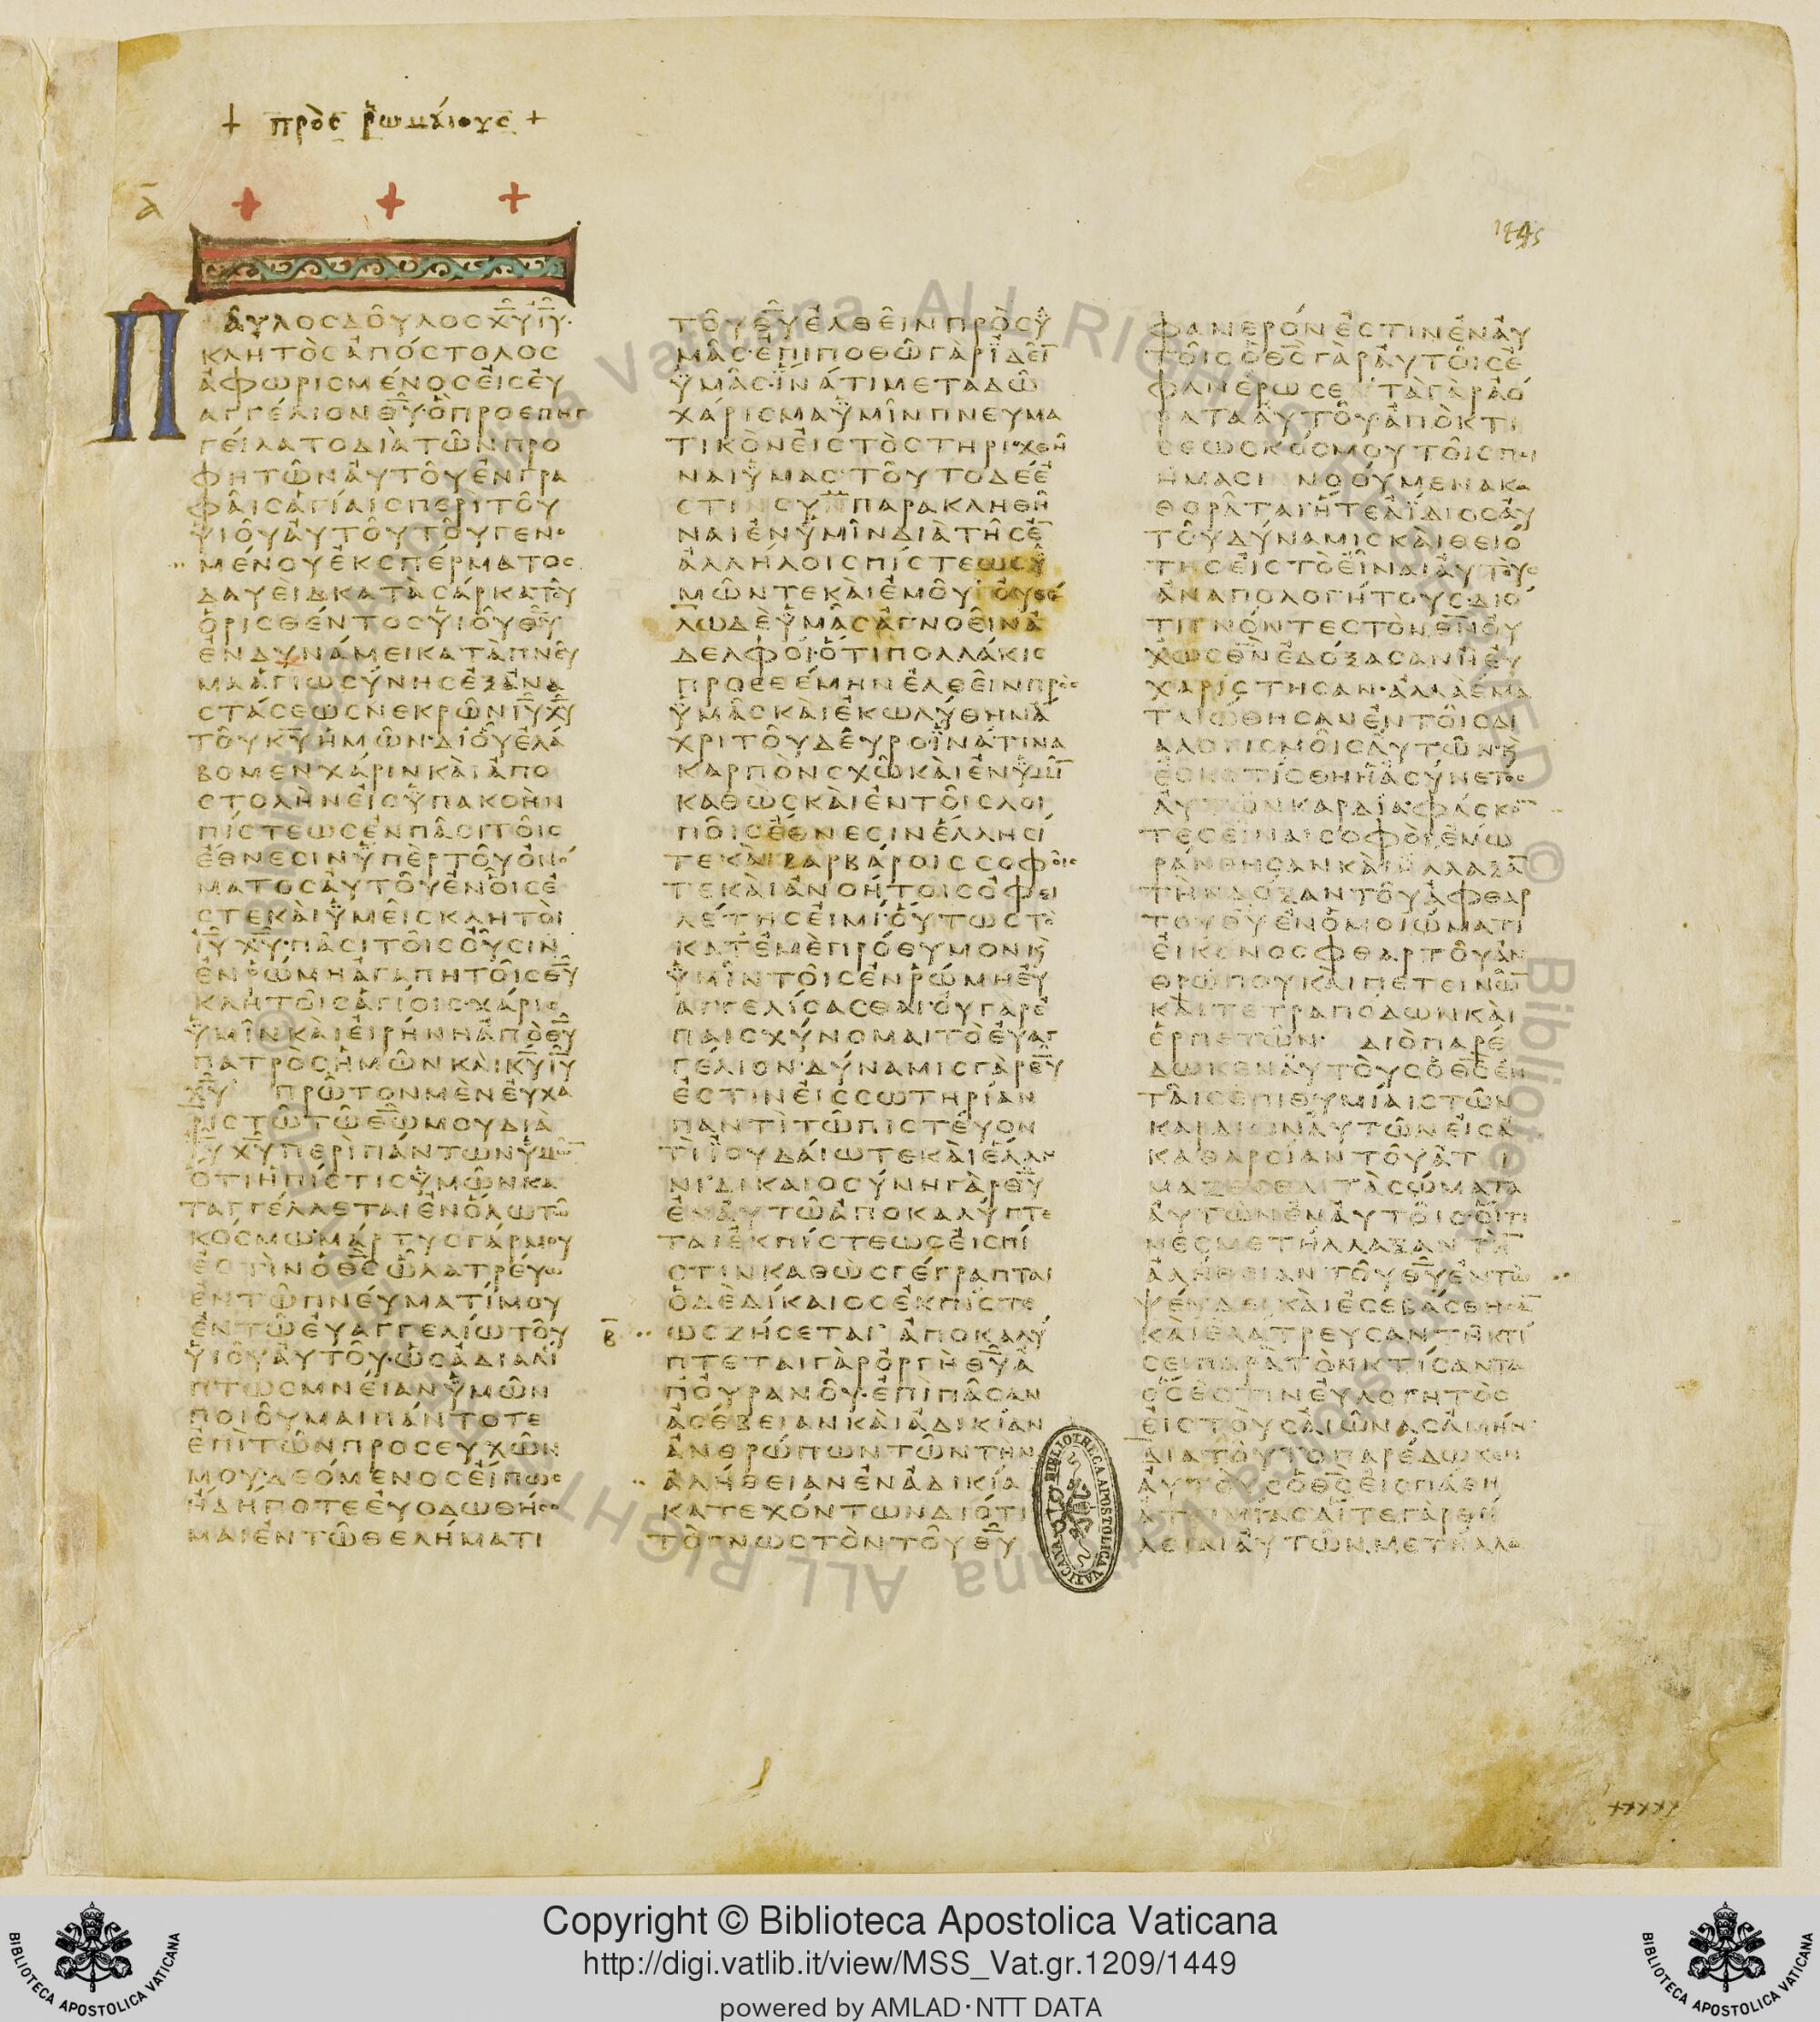 + πρὸς ῥωμαίους +
ᾱ
1445
ΠΑΥΛΟΣ ΔΟΥΛΟΣ Χ͞Υ Ι͞Υ·
ΚΛΗΤΟΣ ΑΠΟΣΤΟΛΟΣ
ΑΦΩΡΙΣΜΕΝΟΣ ΕΙΣ ΕΥ
ΑΓΓΕΛΙΟΝ Θ͞Υ Ο ΠΡΟΕΠΗΓ
ΓΕΙΛΑΤΟ ΔΙΑ ΤΩΝ ΠΡΟ
ΦΗΤΩΝ ΑΥΤΟΥ ΕΝ ΓΡΑ
ΦΑΙΣ ΑΓΙΑΙΣ ΠΕΡΙ ΤΟΥ
ΥΙΟΥ ΑΥΤΟΥ ΤΟΥ ΓΕΝΟ
ΜΕΝΟΥ ΕΚ ΣΠΕΡΜΑΤΟΣ
ΔΑΥΕΙΔ ΚΑΤΑ ΣΑΡΚΑ ΤΟΥ
ΟΡΙΣΘΕΝΤΟΣ ΥΙΟΥ Θ͞Υ
ΕΝ ΔΥΝΑΜΕΙ ΚΑΤΑ ΠΝΕΥ
ΜΑ ΑΓΙΩΣΥΝΗΣ ΕΞ ΑΝΑ
ΣΤΑΣΕΩΣ ΝΕΚΡΩΝ Ι͞Υ Χ͞Υ
ΤΟΥ Κ͞Υ ΗΜΩΝ· ΔΙ ΟΥ ΕΛΑ
ΒΟΜΕΝ ΧΑΡΙΝ ΚΑΙ ΑΠΟ
ΣΤΟΛΗΝ ΕΙΣ ΥΠΑΚΟΗΝ
ΠΙΣΤΕΩΣ ΕΝ ΠΑΣΙ ΤΟΙΣ
ΕΘΝΕΣΙΝ ΥΠΕΡ ΤΟΥ ΟΝΟ
ΜΑΤΟΣ ΑΥΤΟΥ ΕΝ ΟΙΣ Ε
ΣΤΕ ΚΑΙ ΥΜΕΙΣ ΚΛΗΤΟΙ
Ι͞Υ Χ͞Υ· ΠΑΣΙ ΤΟΙΣ ΟΥΣΙΝ
ΕΝ ΡΩΜΗ ΑΓΑΠΗΤΟΙΣ Θ͞Υ
ΚΛΗΤΟΙΣ ΑΓΙΟΙΣ· ΧΑΡΙΣ
ΥΜΙΝ ΚΑΙ ΕΙΡΗΝΗ ΑΠΟ Θ͞Υ
ΠΑΤΡΟΣ ΗΜΩΝ ΚΑΙ Κ͞Υ Ι͞Υ
Χ͞Υ ΠΡΩΤΟΝ ΜΕΝ ΕΥΧΑ
ΡΙΣΤΩ ΤΩ Θ͞Ω ΜΟΥ ΔΙΑ
Ι͞Υ Χ͞Υ ΠΕΡΙ ΠΑΝΤΩΝ ΥΜΩ͞
ΟΤΙ Η ΠΙΣΤΙΣ ΥΜΩΝ ΚΑ
ΤΑΓΓΕΛΛΕΤΑΙ ΕΝ ΟΛΩ ΤΩ
ΚΟΣΜΩ· ΜΑΡΤΥΣ ΓΑΡ ΜΟΥ
ΕΣΤΙΝ Ο Θ͞Σ Ω ΛΑΤΡΕΥΩ
ΕΝ ΤΩ ΠΝΕΥΜΑΤΙ ΜΟΥ
ΕΝ ΤΩ ΕΥΑΓΓΕΛΙΩ ΤΟΥ
ΥΙΟΥ ΑΥΤΟΥ· ΩΣ ΑΔΙΑΛΙ
ΠΤΩΣ ΜΝΕΙΑΝ ΥΜΩΝ
ΠΟΙΟΥΜΑΙ ΠΑΝΤΟΤΕ
ΕΠΙ ΤΩΝ ΠΡΟΣΕΥΧΩΝ
ΜΟΥ· ΔΕΟΜΕΝΟΣ ΕΙ ΠΩΣ
ΗΔΗ ΠΟΤΕ ΕΥΟΔΩΘΗΣΟ
ΜΑΙ ΕΝ ΤΩ ΘΕΛΗΜΑΤΙ
ΤΟΥ Θ͞Υ ΕΛΘΕΙΝ ΠΡΟΣ Υ
ΜΑΣ· ΕΠΙΠΟΘΩ ΓΑΡ ΙΔΕΙ͞
ΥΜΑΣ· ΙΝΑ ΤΙ ΜΕΤΑΔΩ
ΧΑΡΙΣΜΑ ΥΜΙΝ ΠΝΕΥΜΑ
ΤΙΚΟΝ ΕΙΣ ΤΟ ΣΤΗΡΙΧΘΗ
ΝΑΙ ΥΜΑΣ· ΤΟΥΤΟ ΔΕ Ε
ΣΤΙΝ ΣΥΜΠΑΡΑΚΛΗΘΗ
ΝΑΙ ΕΝ ΥΜΙΝ ΔΙΑ ΤΗΣ Ε͞
ΑΛΛΗΛΟΙΣ ΠΙΣΤΕΩΣ Υ
ΜΩΝ ΤΕ ΚΑΙ ΕΜΟΥ· ΟΥ ΘΕ
ΛΩ ΔΕ ΥΜΑΣ ΑΓΝΟΕΙΝ Α
ΔΕΛΦΟΙ· ΟΤΙ ΠΟΛΛΑΚΙΣ
ΠΡΟΕΘΕΜΗΝ ΕΛΘΕΙΝ ΠΡΟΣ
ΥΜΑΣ ΚΑΙ ΕΚΩΛΥΘΗΝ Α
ΧΡΙ ΤΟΥ ΔΕΥΡΟ· ΙΝΑ ΤΙΝΑ
ΚΑΡΠΟΝ ΣΧΩ ΚΑΙ ΕΝ ΥΜΙ͞
ΚΑΘΩΣ ΚΑΙ ΕΝ ΤΟΙΣ ΛΟΙ
ΠΟΙΣ ΕΘΝΕΣΙΝ ΕΛΛΗΣΙ
ΤΕ ΚΑΙ ΒΑΡΒΑΡΟΙΣ ΣΟΦΟΙΣ
ΤΕ ΚΑΙ ΑΝΟΗΤΟΙΣ ΟΦΕΙ
ΛΕΤΗΣ ΕΙΜΙ· ΟΥΤΩΣ ΤΟ
ΚΑΤ ΕΜΕ ΠΡΟΘΥΜΟΝ Κ
ΥΜΙΝ ΤΟΙΣ ΕΝ ΡΩΜΗ ΕΥ
ΑΓΓΕΛΙΣΑΣΘΑΙ· ΟΥ ΓΑΡ Ε
ΠΑΙΣΧΥΝΟΜΑΙ ΤΟ ΕΥΑΓ
ΓΕΛΙΟΝ· ΔΥΝΑΜΙΣ ΓΑΡ Θ͞Υ
ΕΣΤΙΝ ΕΙΣ ΣΩΤΗΡΙΑΝ
ΠΑΝΤΙ ΤΩ ΠΙΣΤΕΥΟΝ
ΤΙ ΙΟΥΔΑΙΩ ΤΕ ΚΑΙ ΕΛΛΗ
ΝΙ· ΔΙΚΑΙΟΣΥΝΗ ΓΑΡ Θ͞Υ
ΕΝ ΑΥΤΩ ΑΠΟΚΑΛΥΠΤΕ
ΤΑΙ ΕΚ ΠΙΣΤΕΩΣ ΕΙΣ ΠΙ
ΣΤΙΝ ΚΑΘΩΣ ΓΕΓΡΑΠΤΑΙ
Ο ΔΕ ΔΙΚΑΙΟΣ ΕΚ ΠΙΣΤΕ
Β̄ ΩΣ ΖΗΣΕΤΑΙ· ΑΠΟΚΑΛΥ
ΠΤΕΤΑΙ ΓΑΡ ΟΡΓΗ Θ͞Υ Α
Π ΟΥΡΑΝΟΥ· ΕΠΙ ΠΑΣΑΝ
ΑΣΕΒΕΙΑΝ ΚΑΙ ΑΔΙΚΙΑΝ
ΑΝΘΡΩΠΩΝ ΤΩΝ ΤΗΝ
ΑΛΗΘΕΙΑΝ ΕΝ ΑΔΙΚΙΑ
ΚΑΤΕΧΟΝΤΩΝ ΔΙΟΤΙ
ΤΟ ΓΝΩΣΤΟΝ ΤΟΥ Θ͞Υ
ΦΑΝΕΡΟΝ ΕΣΤΙΝ ΕΝ ΑΥ
ΤΟΙΣ Ο Θ͞Σ ΓΑΡ ΑΥΤΟΙΣ Ε
ΦΑΝΕΡΩΣΕ ΤΑ ΓΑΡ ΑΟ
ΡΑΤΑ ΑΥΤΟΥ ΑΠΟ ΚΤΙ
ΣΕΩΣ ΚΟΣΜΟΥ ΤΟΙΣ ΠΟΙ
ΗΜΑΣΙ ΝΟΟΥΜΕΝΑ ΚΑ
ΘΟΡΑΤΑΙ Η ΤΕ ΑΙΔΙΟΣ ΑΥ
ΤΟΥ ΔΥΝΑΜΙΣ ΚΑΙ ΘΕΙΟ
ΤΗΣ ΕΙΣ ΤΟ ΕΙΝΑΙ ΑΥΤΟΥΣ
ΑΝΑΠΟΛΟΓΗΤΟΥΣ· ΔΙΟ
ΤΙ ΓΝΟΝΤΕΣ ΤΟΝ Θ͞Ν ΟΥ
Χ ΩΣ Θ͞Ν ΕΔΟΞΑΣΑΝ Η ΕΥ
ΧΑΡΙΣΤΗΣΑΝ· ΑΛΛΑ ΕΜΑ
ΤΑΙΩΘΗΣΑΝ ΕΝ ΤΟΙΣ ΔΙ
ΑΛΟΓΙΣΜΟΙΣ ΑΥΤΩΝ· Κ
ΕΣΚΟΤΙΣΘΗ Η ΑΣΥΝΕΤΟΣ
ΑΥΤΩΝ ΚΑΡΔΙΑ· ΦΑΣΚΟ͞
ΤΕΣ ΕΙΝΑΙ ΣΟΦΟΙ ΕΜΩ
ΡΑΝΘΗΣΑΝ ΚΑΙ ΗΛΛΑΞΑ͞
ΤΗΝ ΔΟΞΑΝ ΤΟΥ ΑΦΘΑΡ
ΤΟΥ Θ͞Υ ΕΝ ΟΜΟΙΩΜΑΤΙ
ΕΙΚΟΝΟΣ ΦΘΑΡΤΟΥ ΑΝ
ΘΡΩΠΟΥ ΚΑΙ ΠΕΤΕΙΝΩ͞
ΚΑΙ ΤΕΤΡΑΠΟΔΩΝ ΚΑΙ
ΕΡΠΕΤΩΝ· ΔΙΟ ΠΑΡΕ
ΔΩΚΕΝ ΑΥΤΟΥΣ Ο Θ͞Σ ΕΝ
ΤΑΙΣ ΕΠΙΘΥΜΙΑΙΣ ΤΩΝ
ΚΑΡΔΙΩΝ ΑΥΤΩΝ ΕΙΣ Α
ΚΑΘΑΡΣΙΑΝ ΤΟΥ ΑΤΙ
ΜΑΖΕΣΘΑΙ ΤΑ ΣΩΜΑΤΑ
ΑΥΤΩΝ ΕΝ ΑΥΤΟΙΣ· ΟΙΤΙ
ΝΕΣ ΜΕΤΗΛΛΑΞΑΝ ΤΗ͞
ΑΛΗΘΕΙΑΝ ΤΟΥ Θ͞Υ ΕΝ ΤΩ
ΨΕΥΔΕΙ ΚΑΙ ΕΣΕΒΑΣΘΗΣΑ͞
ΚΑΙ ΕΛΑΤΡΕΥΣΑΝ ΤΗ ΚΤΙ
ΣΕΙ ΠΑΡΑ ΤΟΝ ΚΤΙΣΑΝΤΑ
ΟΣ ΕΣΤΙΝ ΕΥΛΟΓΗΤΟΣ
ΕΙΣ ΤΟΥΣ ΑΙΩΝΑΣ ΑΜΗΝ·
ΔΙΑ ΤΟΥΤΟ ΠΑΡΕΔΩΚΕΝ
ΑΥΤΟΥΣ Ο Θ͞Σ ΕΙΣ ΠΑΘΗ
ΑΤΙΜΙΑΣ ΑΙ ΤΕ ΓΑΡ ΘΗ
ΛΕΙΑΙ ΑΥΤΩΝ ΜΕΤΗΛΛΑ
BIBLIOTHECA APOSTOLICA VATICANA
Copyright © Biblioteca Apostolica Vaticana
http://digi.vatlib.it/view/MSS_Vat.gr.1209/1449
powered by AMLAD·NTT DATA
BIBLIOTECA APOSTOLICA VATICANA
BIBLIOTECA APOSTOLICA VATICANA